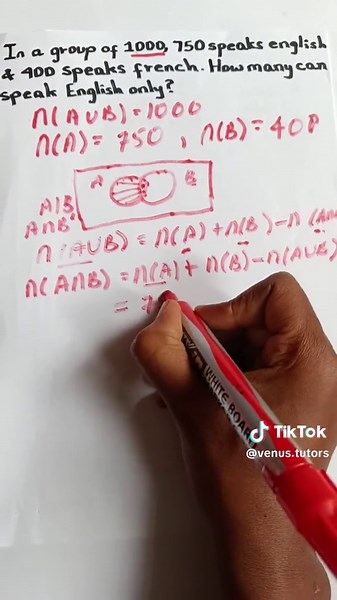 In a group of 1000, 750 speaks english
& 400 speaks french. How many can
speak English only?
n(AUB) = 1000
n(A) = 750 , n(B) = 400
A B
A|B
A∩B'
n(AUB) = n(A) + n(B) - n(A∩
n(A∩B) = n(A) + n(B) - n(AUB)
= 7
WHITE BOARD
TikTok
@venus.tutors